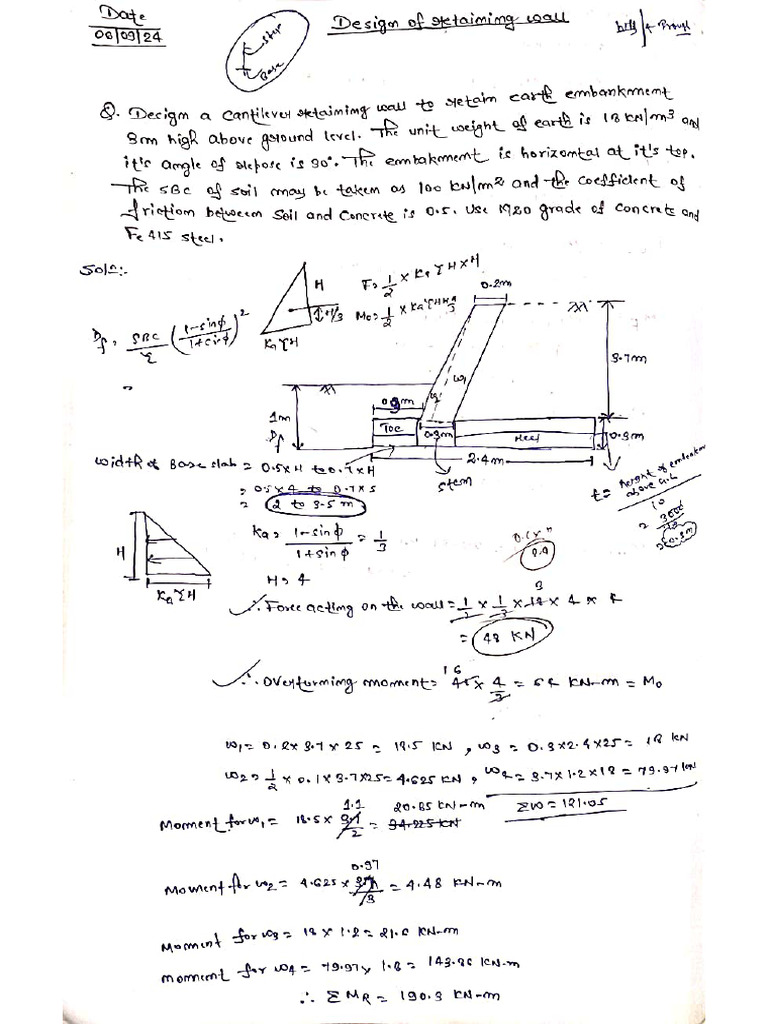 Date
06/09/24
Design of retaining wall
Stem
Base
Q. Design a cantilever retaining wall to retain earth embankment
3m high above ground level. The unit weight of earth is 18 kN/m³ and
it's angle of repose is 30°. The embakment is horizontal at it's top.
The SBC of soil may be taken as 100 kN/m² and the coefficient of
friction between soil and concrete is 0.5. Use M20 grade of concrete and
Fe 415 steel.
Soln:-
H
H/3
KaγH
F = 1/2 × Ka γ H × H
Mo = 1/2 × KaγH×H×H/3
Df = SBC/γ ((1-sinφ)/(1+sinφ))²
=
0.2m
3.7m
w1
w2
0.9m
1m
Df
Toe
0.3m
Heel
0.3m
2.4m
Stem
Width of Base slab = 0.5×H to 0.7×H
= 0.5×4 to 0.7×5
= 2 to 3.5 m
Ka = (1-sinφ)/(1+sinφ) = 1/3
H = 4
H
KaγH
∴ Force acting on the wall = 1/2 × 1/3 × 18 × 4 × 4
= 48 KN
∴ overturning moment = 48 × 4/3 = 64 KN-m = Mo
16
w1 = 0.2 × 3.7 × 25 = 18.5 KN, w3 = 0.3×2.4×25 = 18 KN
w2 = 1/2 × 0.1×3.7×25 = 4.625 KN, w4 = 3.7×1.2×18 = 79.97 KN
Σw = 121.05
Moment for w1 = 18.5 × 1.1 = 20.35 KN-m
Moment for w2 = 4.625 × 0.97 = 4.48 KN-m
Moment for w3 = 18 × 1.2 = 21.6 KN-m
moment for w4 = 79.97 × 1.8 = 143.86 KN-m
∴ ΣMR = 190.3 KN-m